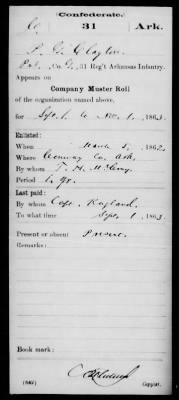 Confederate.
C. 31 Ark.
P. G. Clayton
Pvt., Co. G, 31 Reg't Arkansas Infantry.
Appears on
Company Muster Roll
of the organization named above,
for Sept. 1 to Nov. 1, 1863.
Enlisted:
When March 5, 1862.
Where Conway Co. Ark.
By whom
Period 1 yr.
Last paid:
By whom Capt. Ragland.
To what time Sept. 1, 1863.
Present or absent Present.
Remarks:
Book mark:
(642)
Copyist.